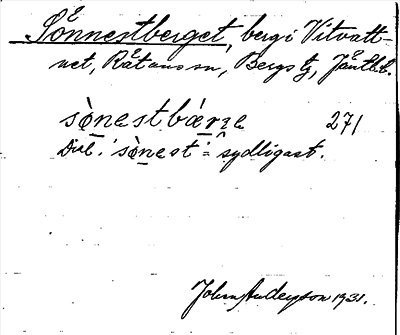 Sönnestberget, berg i Vitvatt-
net, Råtans sn, Bergs tg, Jämtl. l.
sònestbærʒe 271
Dial. 'sònest' = sydligast.
John Anderson 1931.